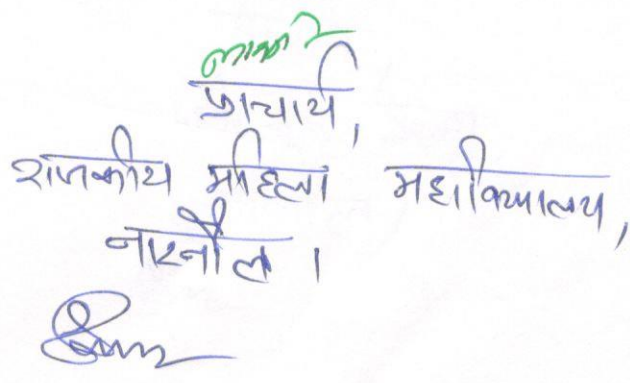 प्राचार्य,
राजकीय महिला महाविद्यालय,
नारनौल ।